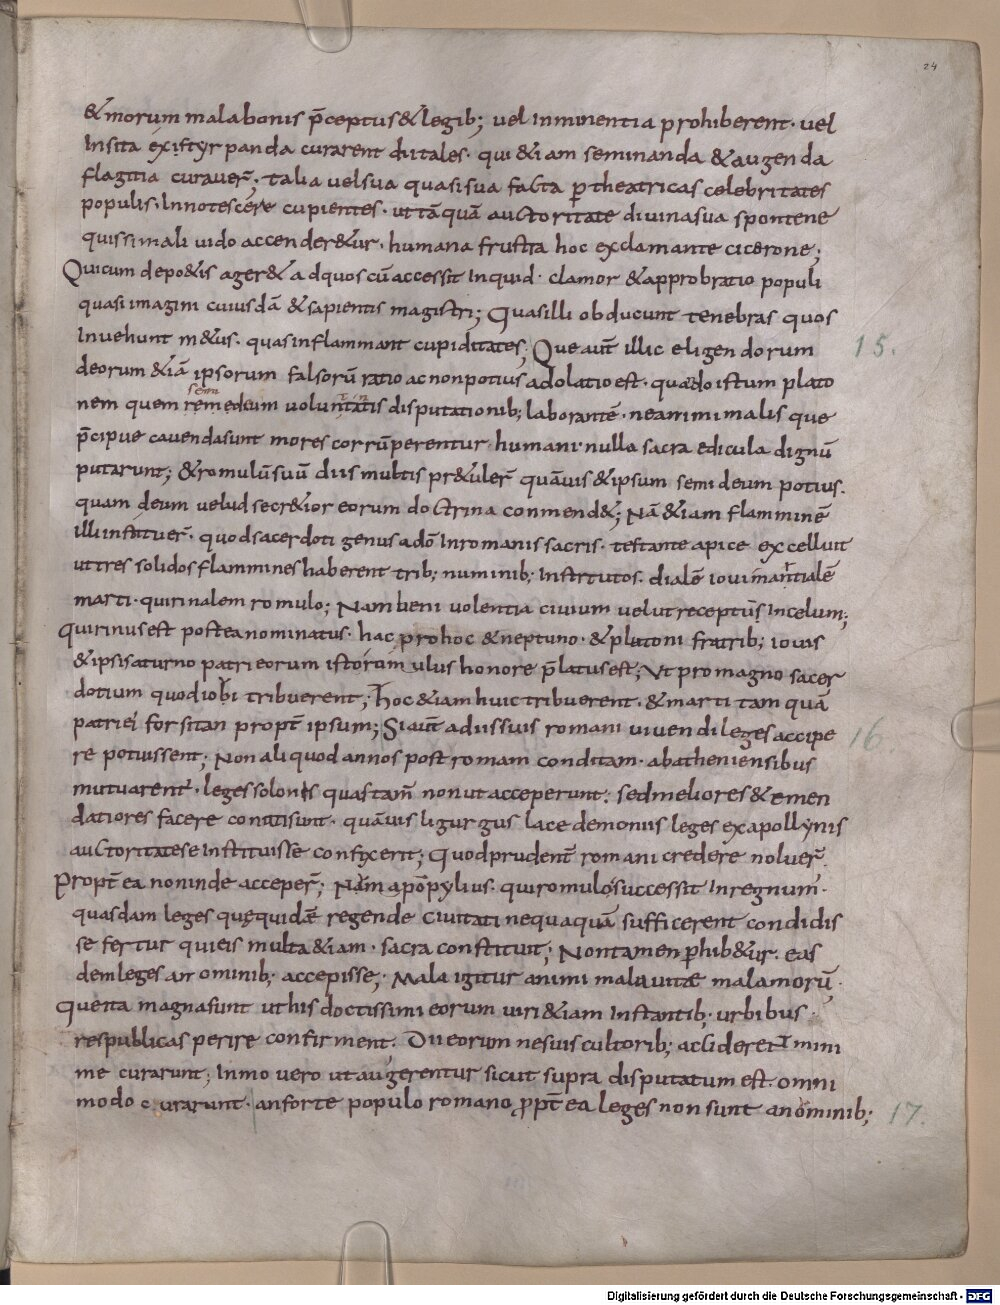 24
& morum mala bonis p̄ceptus & legib; vel inminentia prohiberent · vel
Insita exiſtyrpanda curarent dii tales · qui & iam seminanda & augenda
flagitia curauer̄; talia vel sua quasi sua facta p theatricas celebritates
populis · Innotescere cupientes · ut tāquā auctoritate diuina sua spontene
quissima li uido accender&ur · humana frustra hoc exclamante cicerone;
Qui cum depo&is ager& ad quos cū accessit inquid · clamor & approbratio populi
quasi imagini cuiusdā & sapientis magistri; Quas illi obducunt tenebras quos
Inuehunt m&us · quas inflammant cupiditates; Que aut̄ illic eligendorum
15.
deorum &iā ipsorum falsorū ratio ac non potius adolatio est · quādo istum plato
semi
nem quem remedeum voluntatis disputationib; laborantē · ne animi malis que
p̄cipue cauenda sunt mores corrūperentur · humani · nulla sacra edicula dignū
putarunt; & romulū suū diis multis pr&uler̄ quāuis & ipsum semideum potius ·
quam deum uelud secr&ior eorum doctrina conmend&; Nā &iam flamminē
illi instituer̄ · quod sacerdoti genus adō In romanis sacris · testante apice excelluit
ut tres solidos flammines haberent trib; numinib; Institutos · dialē ioui martialē
marti · quirinalem romulo; Nam beniuolentia ciuium uelut receptus In celum;
quirinus est postea nominatus · hac pro hoc & neptuno · & plutoni fratrib; iouis
& ipsi saturno patri eorum istorum ulus honore p̄latus est; Ut pro magno sacer
dotium quod ioui tribuerent; hoc &iam huic tribuerent · & marti tam quā
patriei forsitan propt̄ ipsum; Si aut̄ a diis suis romani uiuendi leges accipe
16
re potuissent; Non aliquod annos post romam conditam · ab atheniensibus
mutuarent · leges solonis quas tam̄ non ut acceperunt; sed meliores & emen
datiores facere conati sunt · quāuis ligurgus lacedemoniis leges ex apollynis
auctoritate se Instituisse confixerit; Quod prudent̄ romani credere noluer̄
Propt̄ ea non inde acceper̄; Nam apōpylius · qui romulo successit In regnum ·
quasdam leges quę quidē regende ciuitati nequaquā sufficerent condidis
se fertur qui eis multa &iam · sacra constituit; Non tamen phib&ur · eas
dem leges an ominib; accepisse; Mala igitur animi mala uitae mala morū ·
que ita magna sunt ut his doctissimi eorum uiri &iam Instantib; urbibus ·
respublicas perire confirment · Dii eorum ne suis cultorib; accideret mini
me curarunt; Inmo uero ut augerentur sicut supra disputatum est · omni
modo curarunt · an forte populo romano ppt̄ ea leges non sunt anominib;
17.
Digitalisierung gefördert durch die Deutsche Forschungsgemeinschaft - DFG